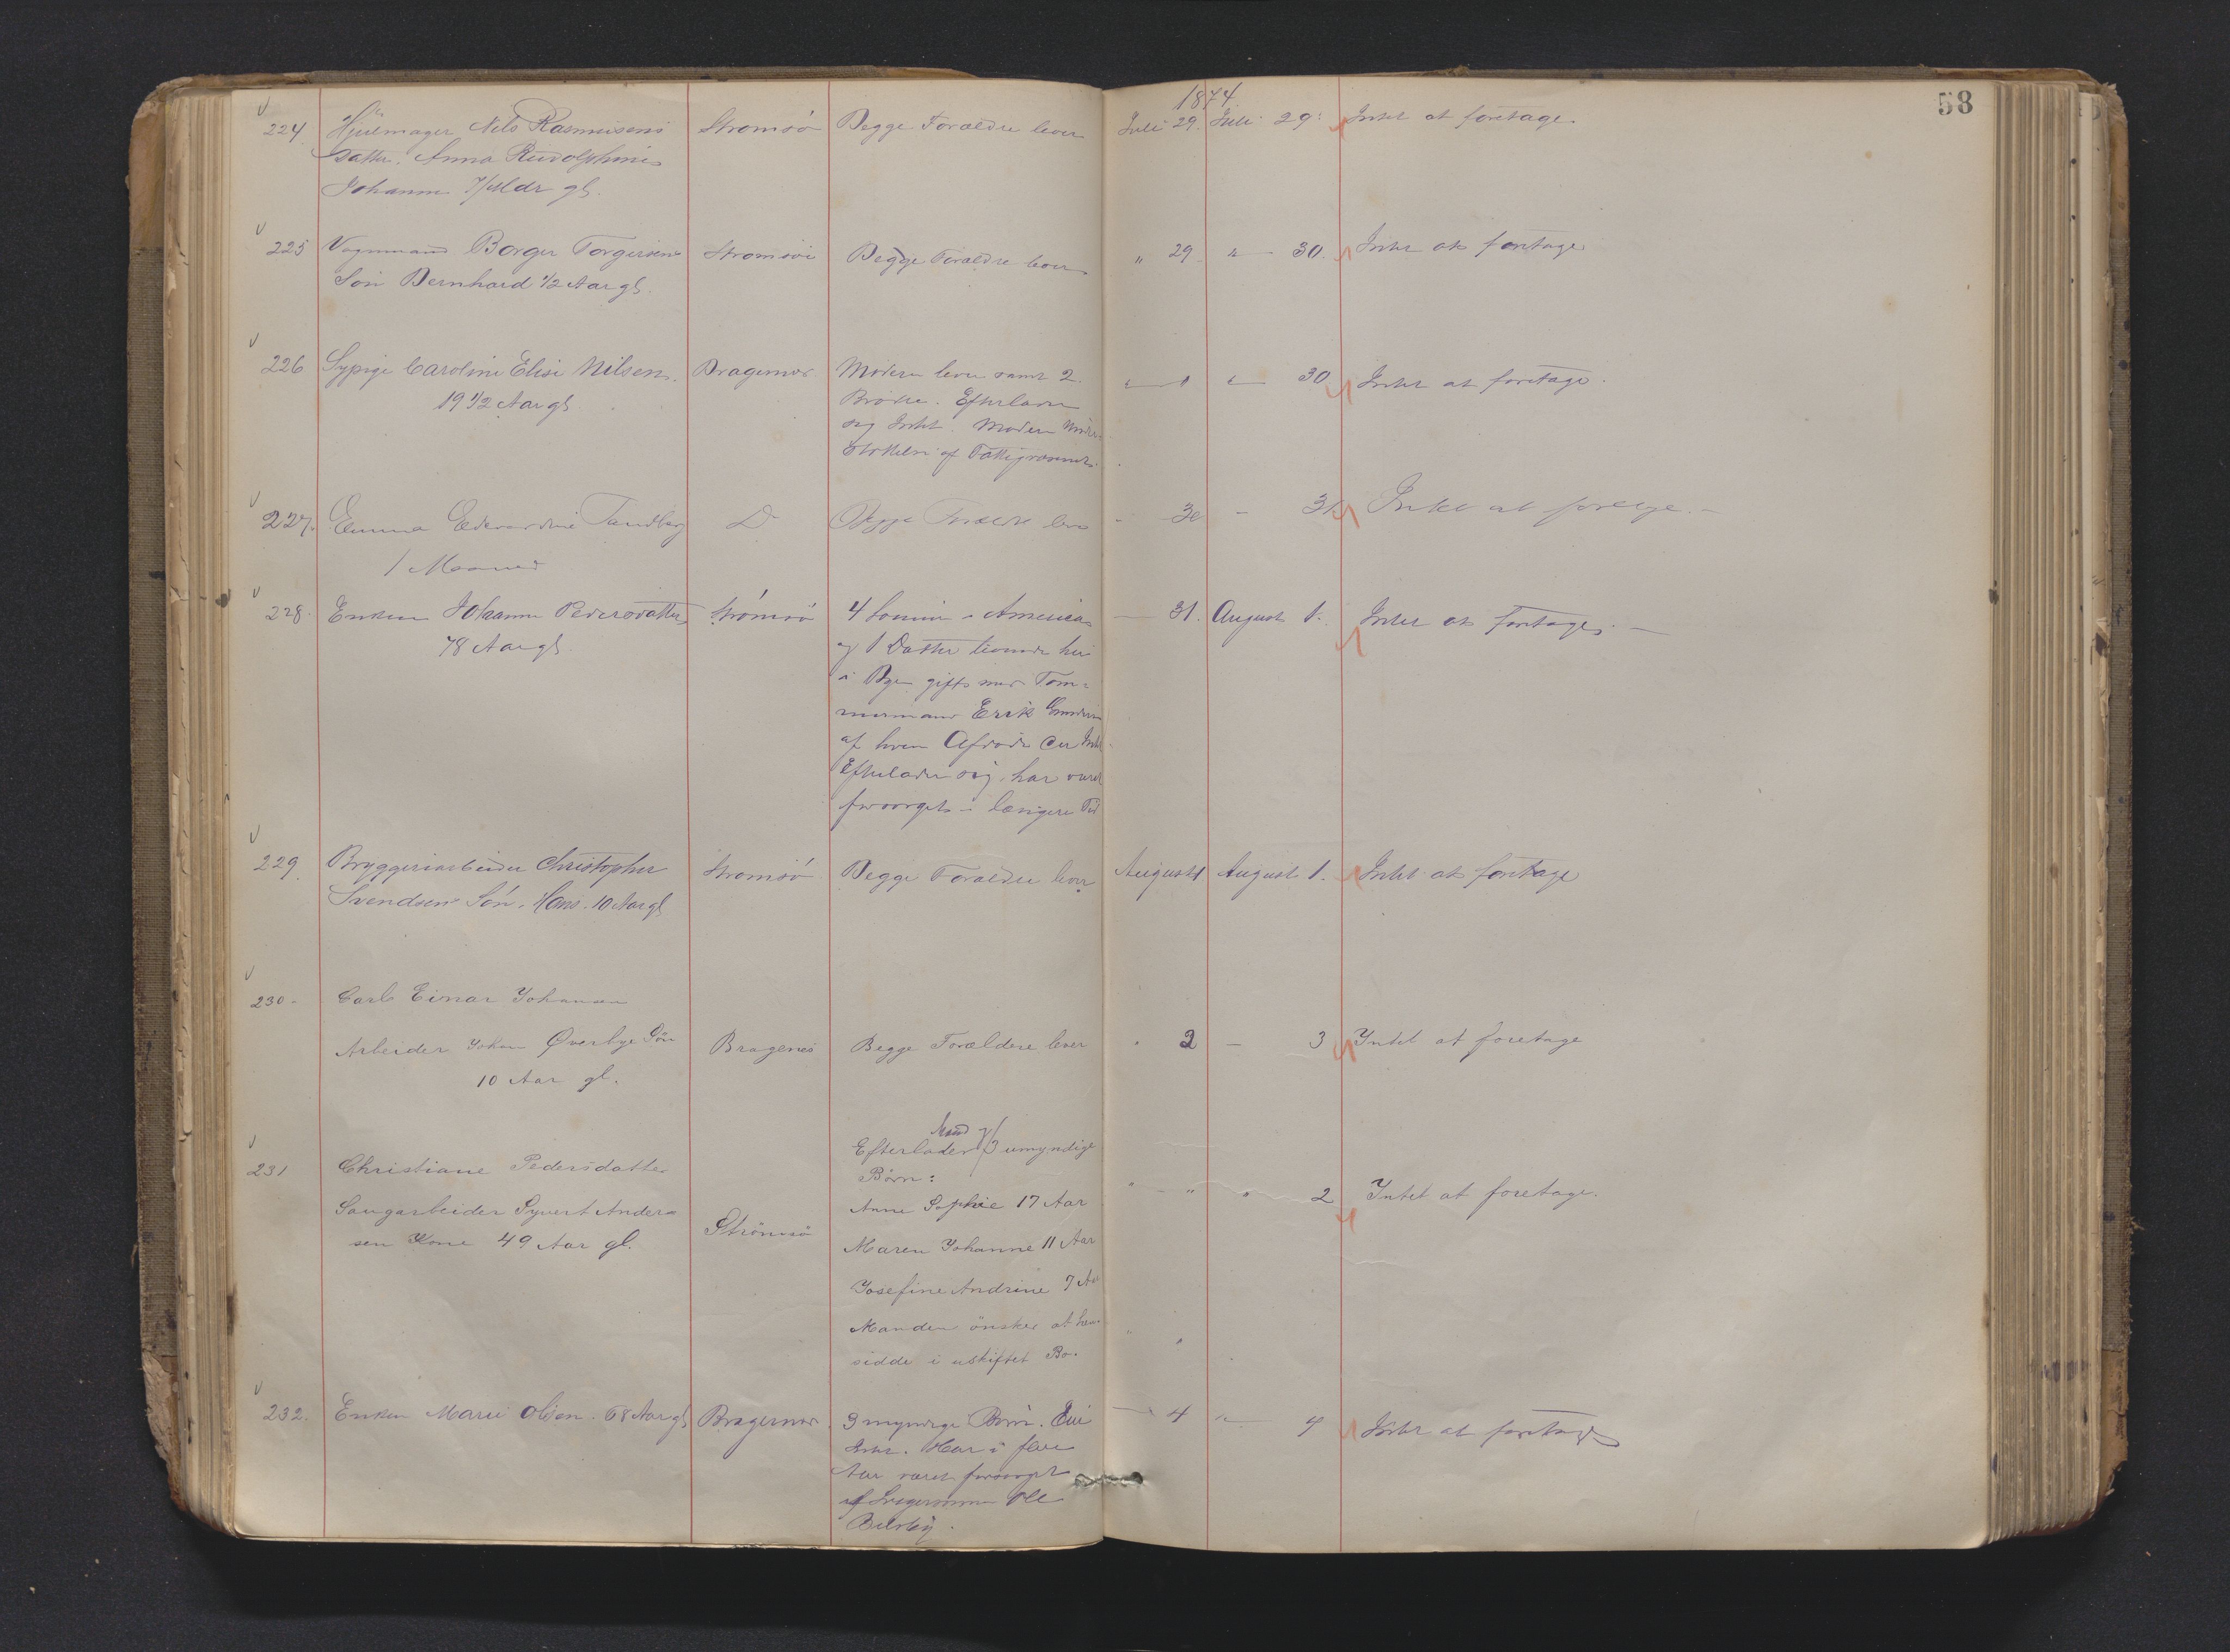 1874
58
224 Hjulmager Nils Rasmusens Stromsö Begge Forældre lever Juli 29. Juli 29. Intet at foretage
Datter. Anna Rudolphine
Johanne 7 Mdr gl.
225 Vognmand Borger Torgersens Stromsöe Begge Forældre lever " 29 " 30. Intet at foretage
Sön Bernhard 1/2 Aar gl.
226 Sypige Caroline Elise Nilsen. Bragernæs Moderen lever samt 2 30 Intet at foretage.
19 1/2 Aar gl. Brødre. Efterlader
sig Intet. Moderen
af Fattigvæsenet.
227. Emma Edevardine Tandberg D Begge Forældre lever - 30 - 31 Intet at foretage. -
1 Maaned
228. Enken Johanne Pedersdatter Strömsö 4 Sönner i America — 31. August 1. Intet at foretage. —
78 Aar gl. og 1 Datter levende her
i Byen gift med Töm-
mermand Erik
af hvem Afdøde er Intet
Efterlader sig, har været
forsörget i længere Tid
229. Bryggeriarbeider Christopher Stromsö Begge Forældre lever August 1 August 1. Intet at foretage
Svendsens Sön. Hans. 10 Aar gl
230 - Carl Einar Johansen
Arbeider Johan Øverbye Sön Bragenes Begge Forældere lever " 2 — 3 Intet at foretage
10 Aar gl.
Mand og
231 Christiane Pedersdatter Efterlader 3 umyndige
Börn: " " " 2 Intet at foretage.
Saugarbeider Syvert Ander= Anne Sophie 17 Aar
sen Kone 49 Aar gl. Strömsö Maren Johanne 11 Aar
Josefine Andrine 7 Aar
Manden önsker at hen-
sidde i uskiftet Bo.
232. Enken Marie Olsen. 68 Aar gl Bragernæs. 3 myndige Börn. Eier — 4 " 4 Intet at foretage
Intet. Har i flere
Aar været forsörget
af Svigersönnen Ole